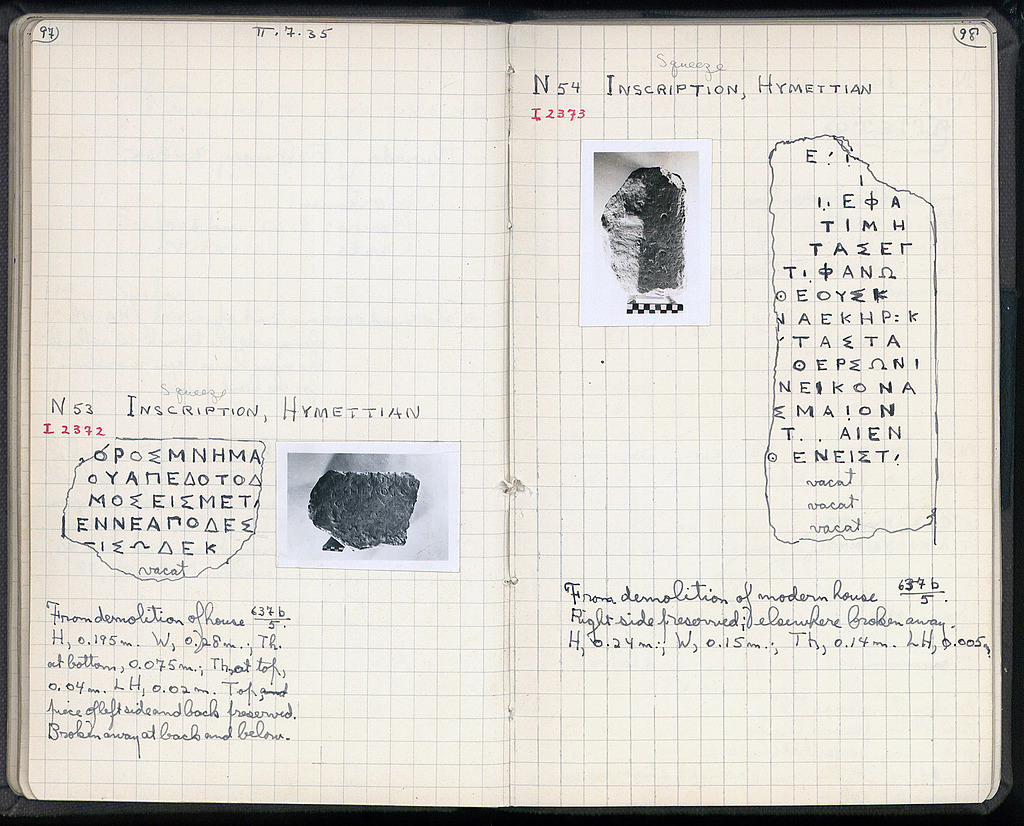 97
II.7.35
Squeeze
N 53 INSCRIPTION, HYMETTIAN
I 2372
ΟΡΟΣΜΝΗΜΑ
ΟΥΑΠΕΔΟΤΟΔ
ΜΟΣΕΙΣΜΕΤ
ΕΝΝΕΑΠΟΔΕΣ
ΙΣΩΔΕΚ
vacat
From demolition of house 637 b/5.
H, 0.195 m. W, 0.28 m.; Th.
at bottom, 0.075 m.; Th, at top,
0.04 m. LH, 0.02 m. Top, and
piece of left side and back preserved.
Broken away at back and below.
98
Squeeze
N 54 INSCRIPTION, HYMETTIAN
I 2373
Ε
Ι
Ι. ΕΦΑ
ΤΙΜΗ
ΤΑΣΕΓ
ΤΙΦΑΝΩ
ΘΕΟΥΣΚ
ΝΑΕΚΗΡ:Κ
ΤΑΣΤΑ
ΘΕΡΣΩΝΙ
ΝΕΙΚΟΝΑ
ΣΜΑΙΟΝ
Τ . . ΑΙΕΝ
ΘΕΝΕΙΣΤ
vacat
vacat
vacat
From demolition of modern house 637 b/5.
Right side preserved; elsewhere broken away.
H, 0.24 m.; W, 0.15 m.; Th, 0.14 m. LH, 0.005